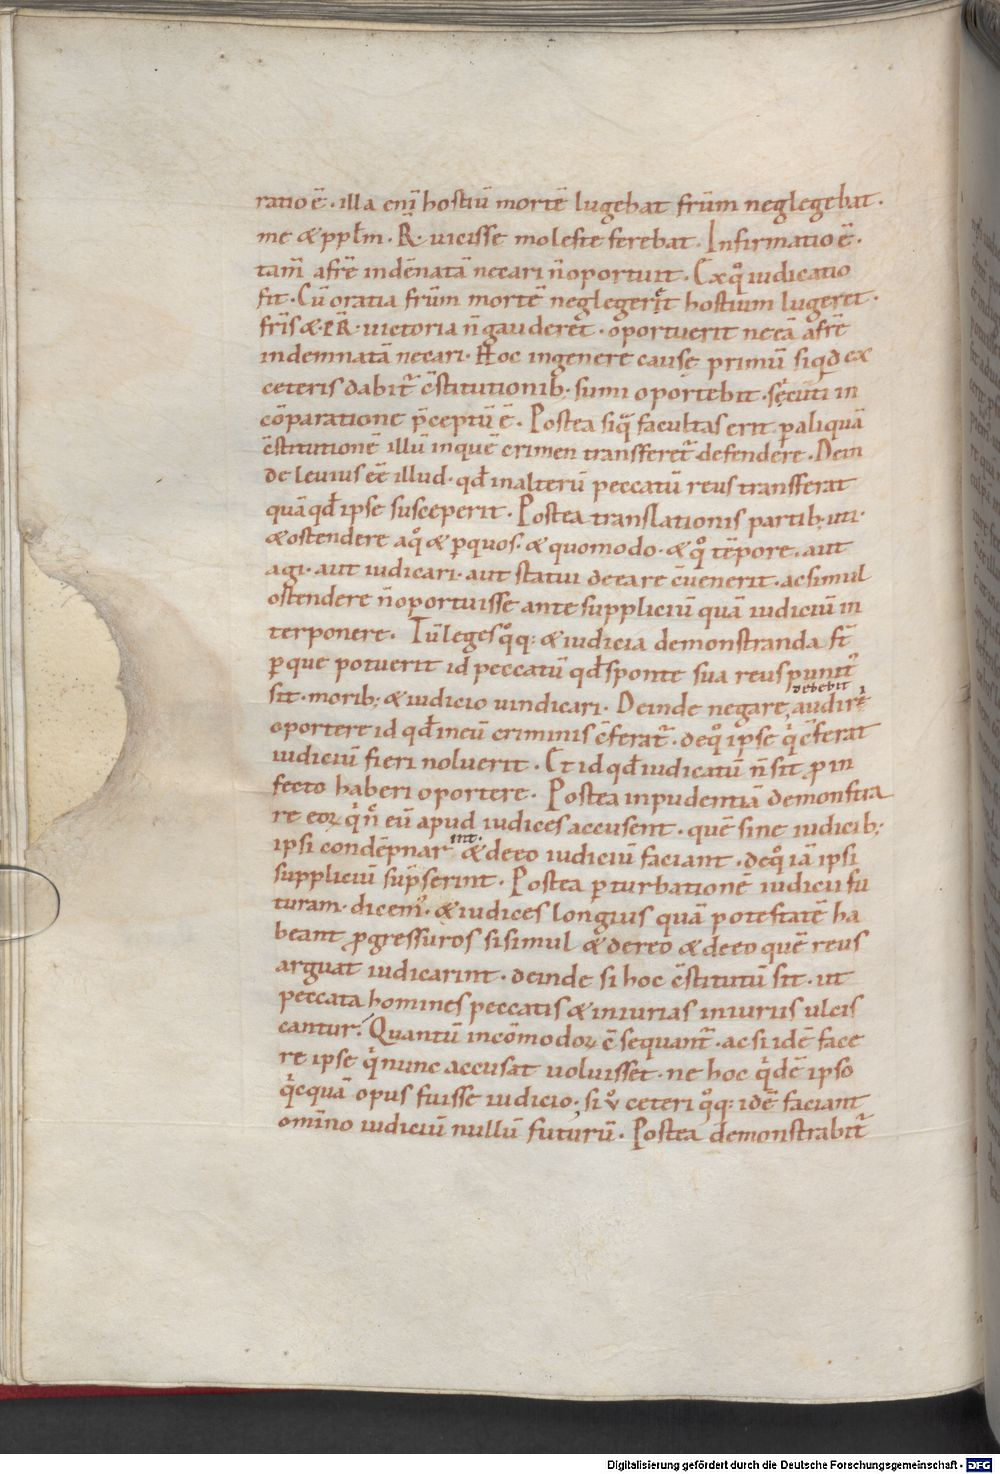 ratio ē. illa eni hostiū mortē lugebat frm̄ neglegebat.
me & ppłm. R̄. vicisse moleste ferebat. Infirmatio ē.
tam̄ afrē indēnatā necari n̄ oportuit. Ex qͦ iudicatio
fit. Cū oratia frm̄ mortē neglegerit hostium lugeret.
fris & .PR̄. victoria n̄ gauderet. oportuerit necā afrē
indemnatā necari. Hoc ingenere causę primū siqd ex
ceteris dabit̄ c̄stitutionib; sumi oportebit. sęcuti in
cōparatione p̄ceptū ē. Postea siq̄ facultas erit p̱ aliquā
c̄stitutionē illū inquē crimen transferet̄ defendere. Dein
de levius eē illud. qđ inalterū peccatū reus transferat
quā qđ ipse susceperit. Postea translationis partib; uti.
& ostendere aqͦ & p̱quos. & quomodo. & qͦ tēpore. aut
agi. aut iudicari. aut statui de ea re c̄venerit. ac simul
ostendere n̄ oportuisse ante suppliciū quā iudiciū in
terponere. Tū leges qͦq; & iudicia demonstranda st̄
p̱ que potuerit id peccatū qđ sponte sua reus punit᷑
sit. morib; & iudicio vindicari. Deinde negare audire
debebit
oportere id qđ ineū criminis c̄ferat̄. deqͦ ipse qi c̄ferat
iudiciū fieri noluerit. Et id qđ iudicatū n̄ sit p̱ in
fecto haberi oportere. Postea inpudentiā demonstra
re eoꝝ qi n̄ eū apud iudices accusent. quē sine iudicib;
ipsi condēpnar int. & de eo iudiciū faciant. deqͦ iā ipsi
suppliciū sūpserint. Postea p̱turbationē iudicii fu
turam. dicem᷑. & iudices longius quā potestatē ha
beant p̱gressuros si simul & de reo & de eo quē reus
arguat iudicarint. deinde si hoc c̄stitutū sit. ut
peccata homines peccatis & iniurias iniuriis ulcis
cantur. Quantū incōmodoꝝ c̄sequant̄. ac si idē face
re ipse qi nunc accusat voluisset. ne hoc qidē ipso
qicquā opus fuisse iudicio. si v̊ ceteri qͦq; idē faciant
omīno iudiciū nullū futurū. Postea demonstrabit̄
Digitalisierung gefördert durch die Deutsche Forschungsgemeinschaft - DFG